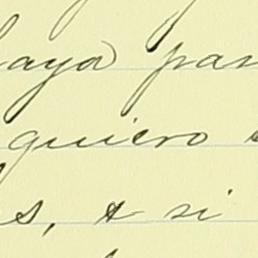 haya par
quiero
s, o si